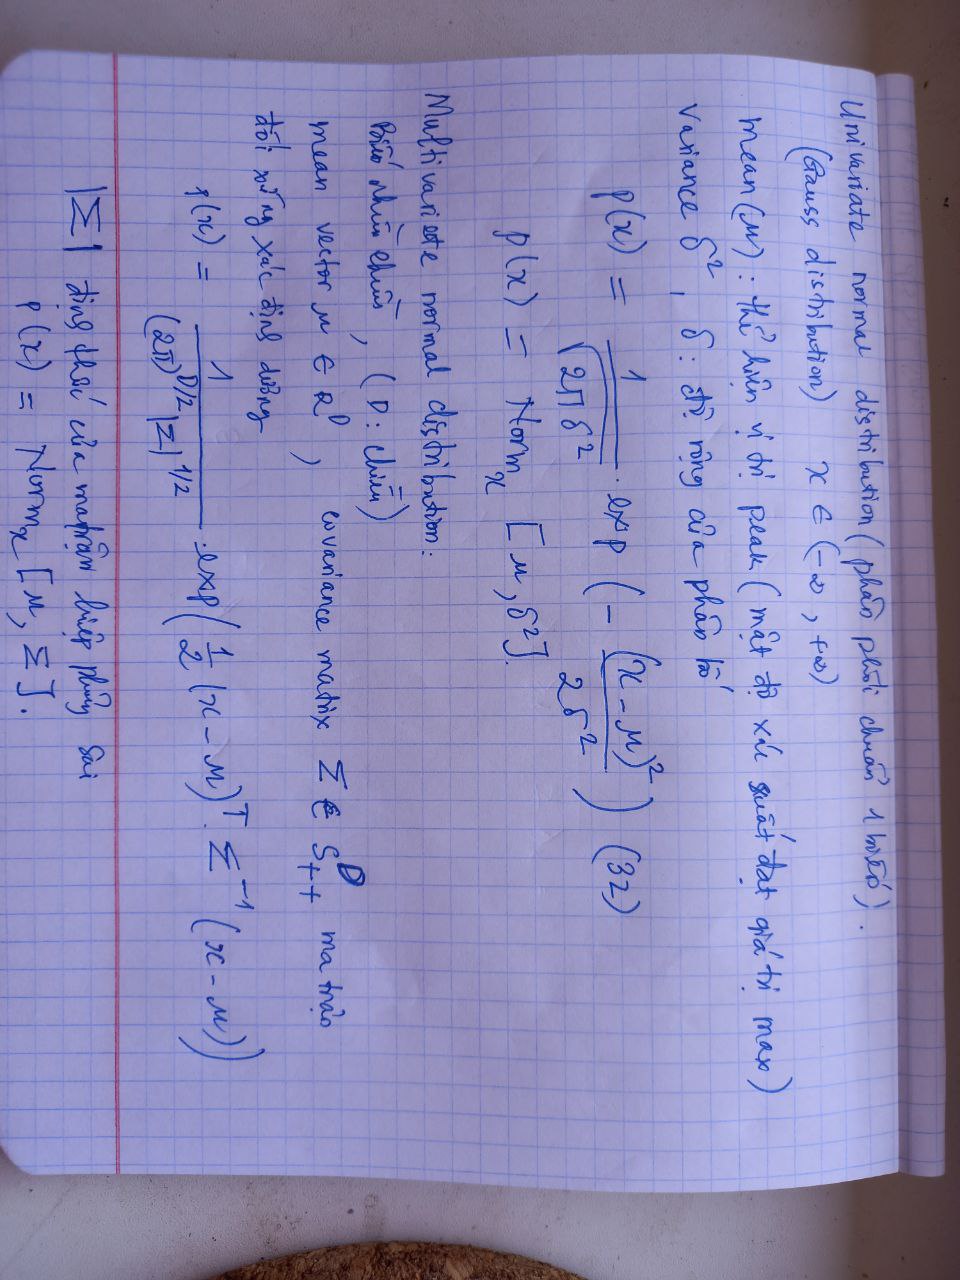 Univariate normal distribution (phân phối chuẩn 1 biến).
(Gauss distribution) x ∈ (-∞, +∞)
mean (μ): thể hiện vị trí peak (mật độ xác suất đạt giá trị max)
Variance δ², δ: độ rộng của phân bố
p(x) = 1/√(2πδ²) · exp(-(x-μ)²/(2δ²)) (32)
p(x) = Normₓ [μ, δ²].
Multivariate normal distribution:
Biến nhiều chiều, (D: chiều)
mean vector μ ∈ R^D, covariance matrix Σ ∈ S^D_++ ma trận
đối xứng xác định dương
p(x) = 1/((2π)^(D/2) |Σ|^(1/2)) · exp(1/2 (x-μ)^T. Σ^(-1) (x-μ))
|Σ| định thức của ma trận hiệp phương sai
p(x) = Normₓ [μ, Σ].